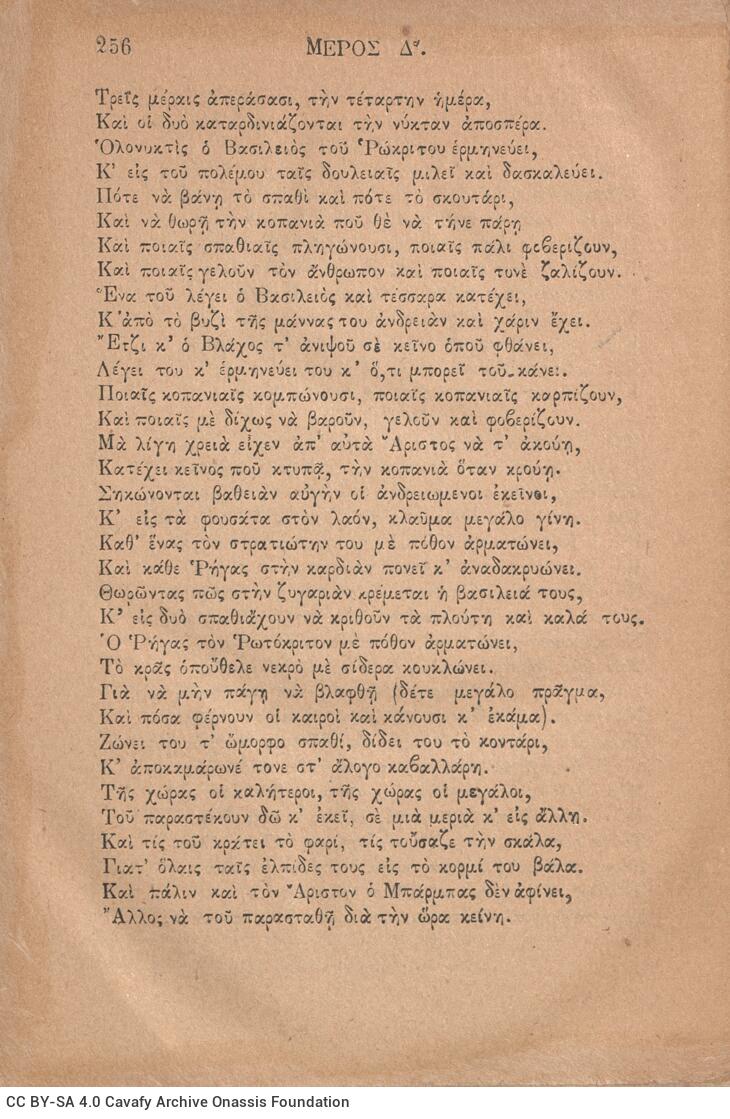 256
ΜΕΡΟΣ Δʹ.
Τρεῖς μέραις ἀπεράσασι, τὴν τέταρτην ἡμέρα,
Καὶ οἱ δυὸ καταρδινιάζονται τὴν νύκταν ἀποσπέρα.
Ὁλονυκτὶς ὁ Βασιλειὸς τοῦ Ῥώκριτου ἑρμηνεύει,
Κ' εἰς τοῦ πολέμου ταῖς δουλειαῖς μιλεῖ καὶ δασκαλεύει.
Πότε νὰ βάνῃ τὸ σπαθὶ καὶ πότε τὸ σκουτάρι,
Καὶ νὰ θωρῇ τὴν κοπανιὰ ποῦ θὲ νὰ τήνε πάρῃ
Καὶ ποιαῖς σπαθιαῖς πληγώνουσι, ποιαῖς πάλι φοβερίζουν,
Καὶ ποιαῖς γελοῦν τὸν ἄνθρωπον καὶ ποιαῖς τυνὲ ζαλίζουν.
Ἕνα τοῦ λέγει ὁ Βασιλειὸς καὶ τέσσαρα κατέχει,
Κ' ἀπὸ τὸ βυζὶ τῆς μάννας του ἀνδρειὰν καὶ χάριν ἔχει.
Ἔτζι κ' ὁ Βλάχος τ' ἀνιψοῦ σὲ κεῖνο ὁποῦ φθάνει,
Λέγει του κ' ἑρμηνεύει του κ' ὅ,τι μπορεῖ τοῦ κάνει.
Ποιαῖς κοπανιαῖς κομπώνουσι, ποιαῖς κοπανιαῖς καρπίζουν,
Καὶ ποιαῖς μὲ δίχως νὰ βαροῦν, γελοῦν καὶ φοβερίζουν.
Μὰ λίγη χρειὰ εἶχεν ἀπ' αὐτὰ Ἄριστος νὰ τ' ἀκούῃ,
Κατέχει κεῖνος ποῦ κτυπᾷ, τὴν κοπανιὰ ὅταν κρούῃ.
Σηκώνονται βαθειὰν αὐγὴν οἱ ἀνδρειωμενοι ἐκεῖνοι,
Κ' εἰς τὰ φουσάτα στὸν λαόν, κλαῦμα μεγάλο γίνη.
Καθ' ἕνας τὸν στρατιώτην του μὲ πόθον ἀρματώνει,
Καὶ κάθε Ῥήγας στὴν καρδιὰν πονεῖ κ' ἀναδακρυώνει.
Θωρῶντας πῶς στὴν ζυγαριὰν κρέμεται ἡ βασιλειά τους,
Κ' εἰς δυὸ σπαθιὰ ἔχουν νὰ κριθοῦν τὰ πλούτη καὶ καλά τους.
Ὁ Ῥήγας τὸν Ῥωτόκριτον μὲ πόθον ἀρματώνει,
Τὸ κρᾶς ὁποὔθελε νεκρὸ μὲ σίδερα κουκλώνει.
Γιὰ νὰ μὴν πάγῃ νὰ βλαφθῇ (δέτε μεγάλο πρᾶγμα,
Καὶ πόσα φέρνουν οἱ καιροὶ καὶ κάνουσι κ' ἐκάμα).
Ζώνει του τ' ὤμορφο σπαθί, δίδει του τὸ κοντάρι,
Κ' ἀποκαμάρωνέ τονε στ' ἄλογο καβαλλάρη.
Τῆς χώρας οἱ καλήτεροι, τῆς χώρας οἱ μεγάλοι,
Τοῦ παραστέκουν δῶ κ' ἐκεῖ, σὲ μιὰ μεριὰ κ' εἰς ἄλλη.
Καὶ τίς τοῦ κράτει τὸ φαρί, τίς τοὔσαζε τὴν σκάλα,
Γιατ' ὅλαις ταῖς ἐλπίδες τους εἰς τὸ κορμί του βάλα.
Καὶ πάλιν καὶ τὸν Ἄριστον ὁ Μπάρμπας δὲν ἀφίνει,
Ἄλλος νὰ τοῦ παρασταθῇ διὰ τὴν ὥρα κείνη.
CC BY-SA 4.0 Cavafy Archive Onassis Foundation